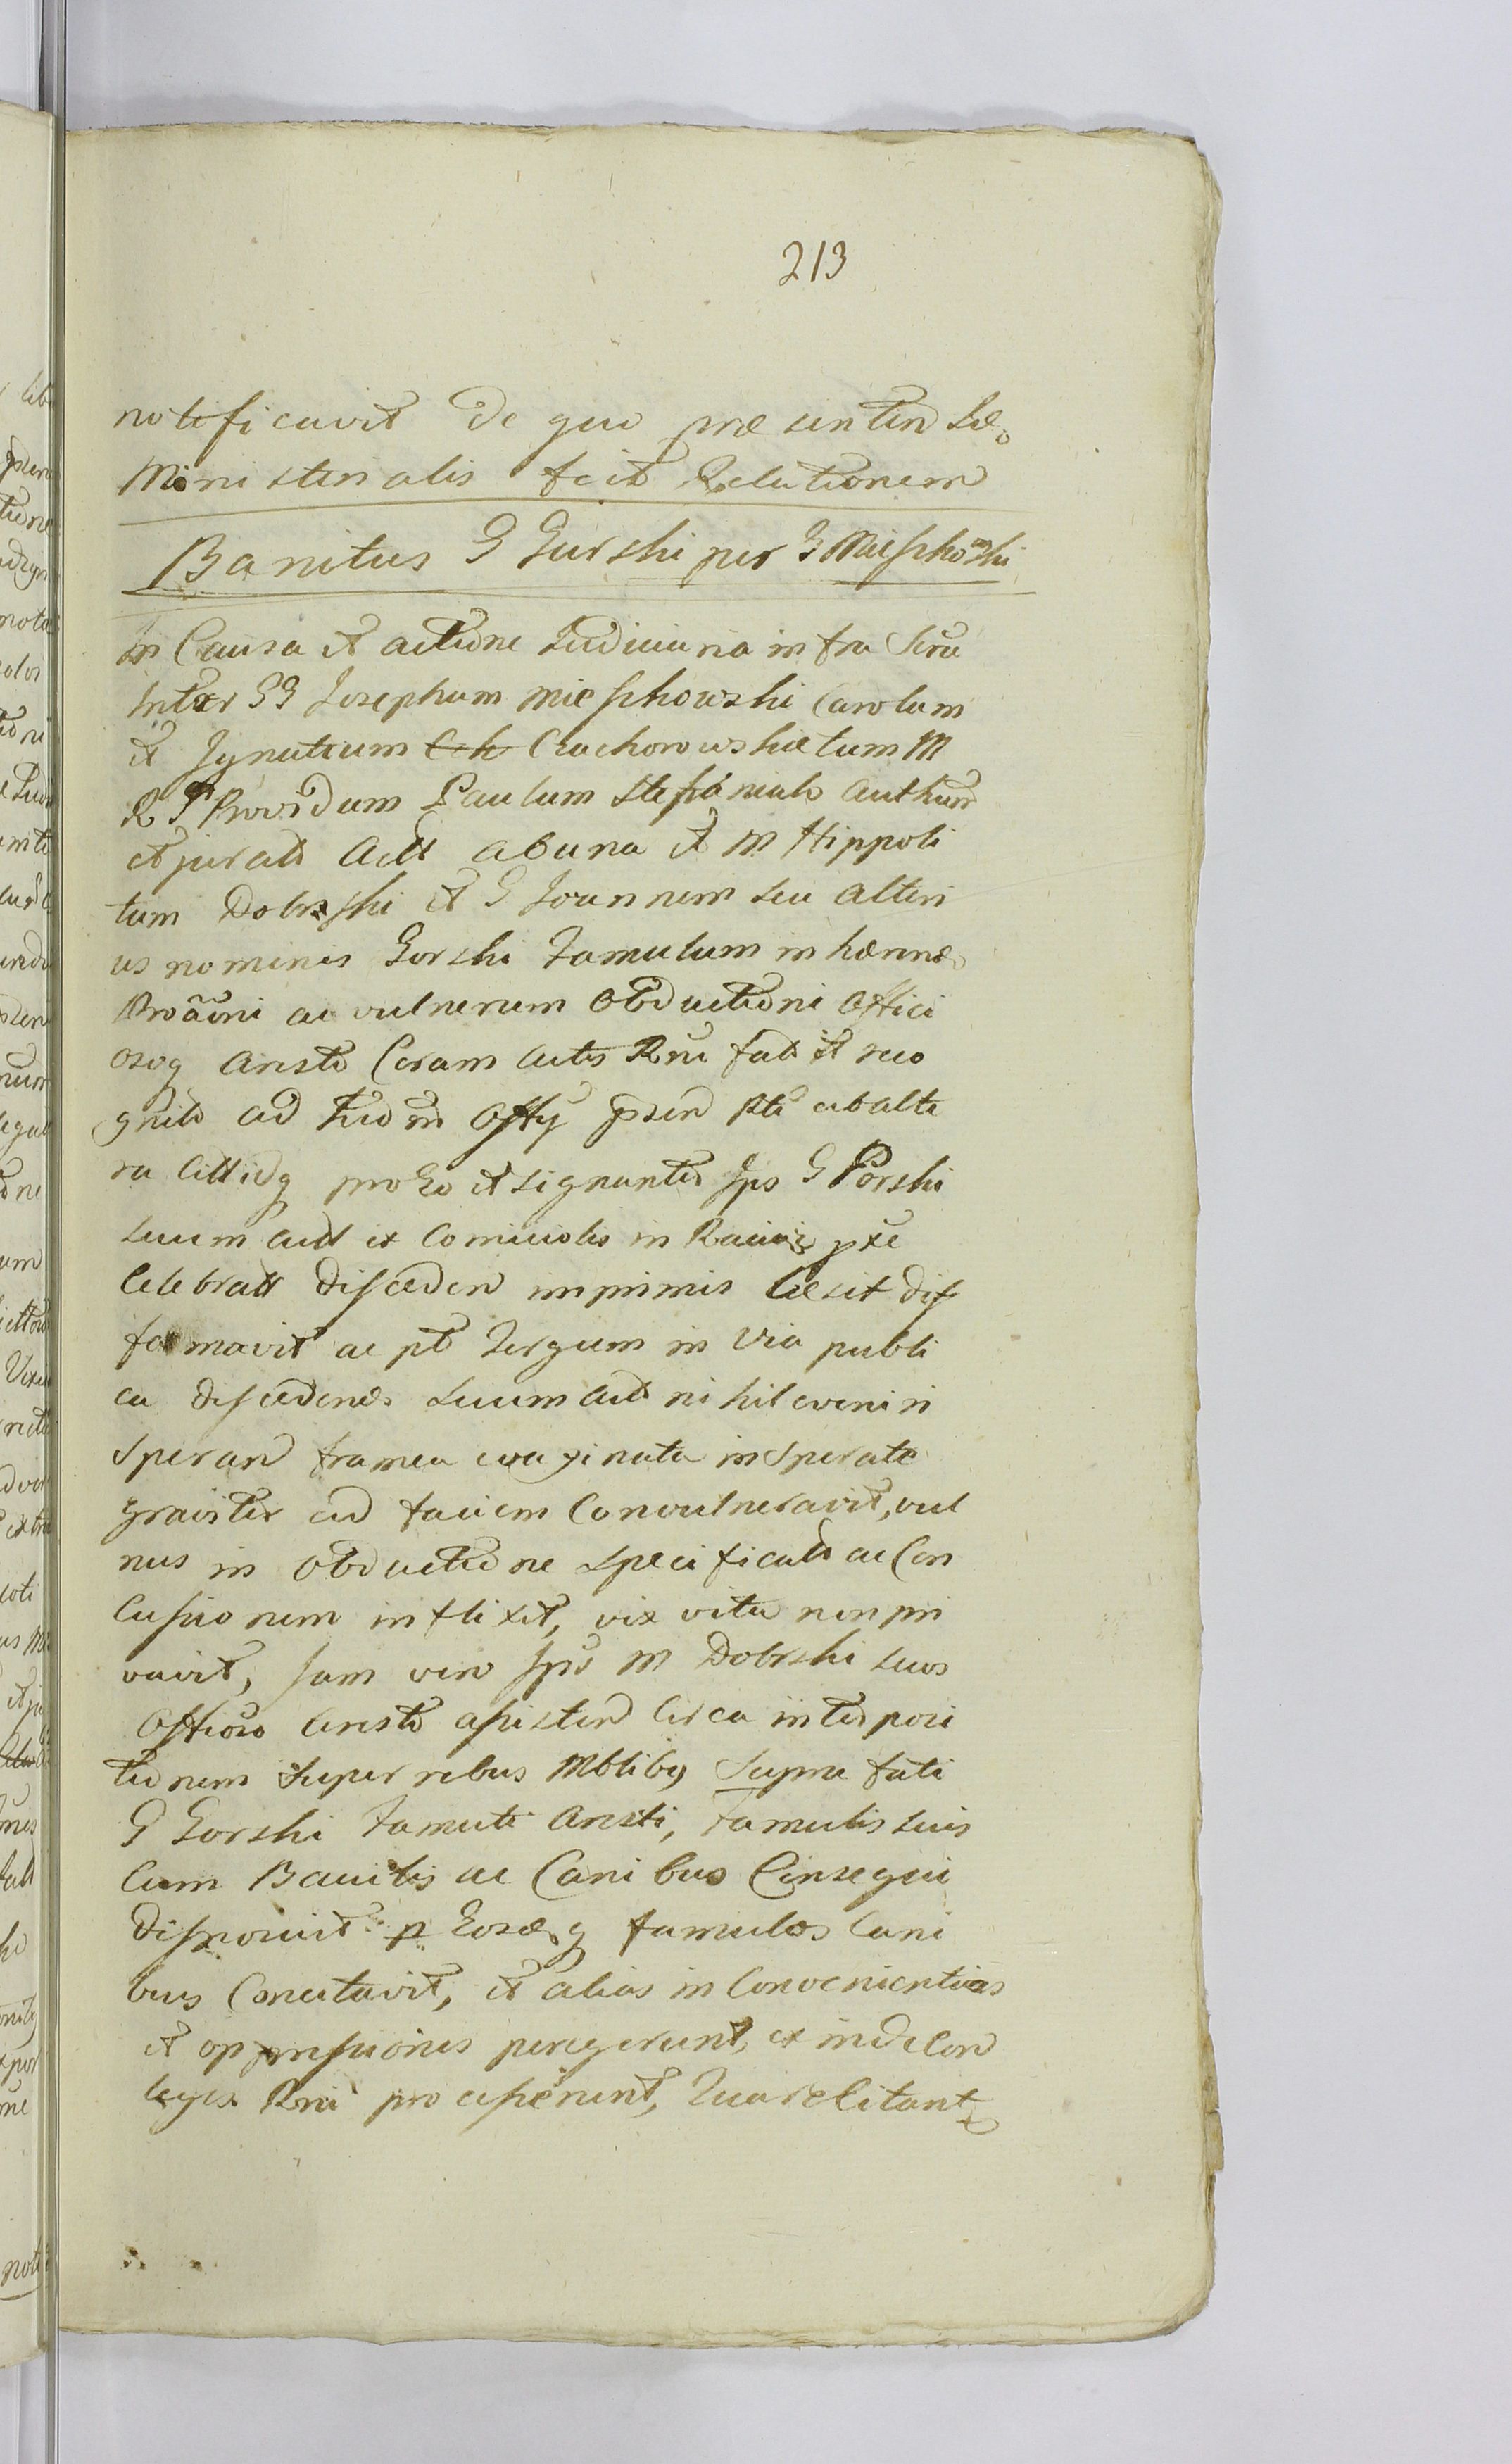 213
notificavit de quo præsentem suæ
Ministerialis fecit Relationem
Banitus G Gurski per G Mieszkowski
In Causa et actione Judiciaria infra Scra
Inter GG Josephum Mieszkowski Carolum
et Ignatium Czachorowskie tum M
R P Providum Paulum Stefaniuk Authum
et jurato Actt ab una et M Hippoli
tum Dobrski et G Joannem seu alteri
us nominis Gorski Famulum
ac vulnerum Obductioni Offici
osoq Aresto Coram Actis Rni fat et reco
gnito ad Off psen Pte ab alte
ra Citt idq pro eo et signanter Ips G Porski
suum actt ex Comitiolis in
Celebratt disceden imprimis læsit dif
famavit ac pt tergum in via publi
ca discedenes suum actt nihil eveniri
speran framea evaginata insperate
graviter ad faciem Convulneravit, vul
nus in Obductione specificatt ac Con
tusionem inflixit, vix vita non pri
vavit, Jam vero Ips M Dobrski suos
Offioso Aresto assisten Circa interposi
tionem super rebus Mblibq Supra fati
G Gorski Famuli Aresti, Famulis suis
Cum Baculis ac Canibus Consequi
disposuit p Eosq famulos Cani
bus Concitavit, et alias inconvenientias
et oppressiones peregerunt, ex inde Con
leges Rni pro ceperunt, Querelitant